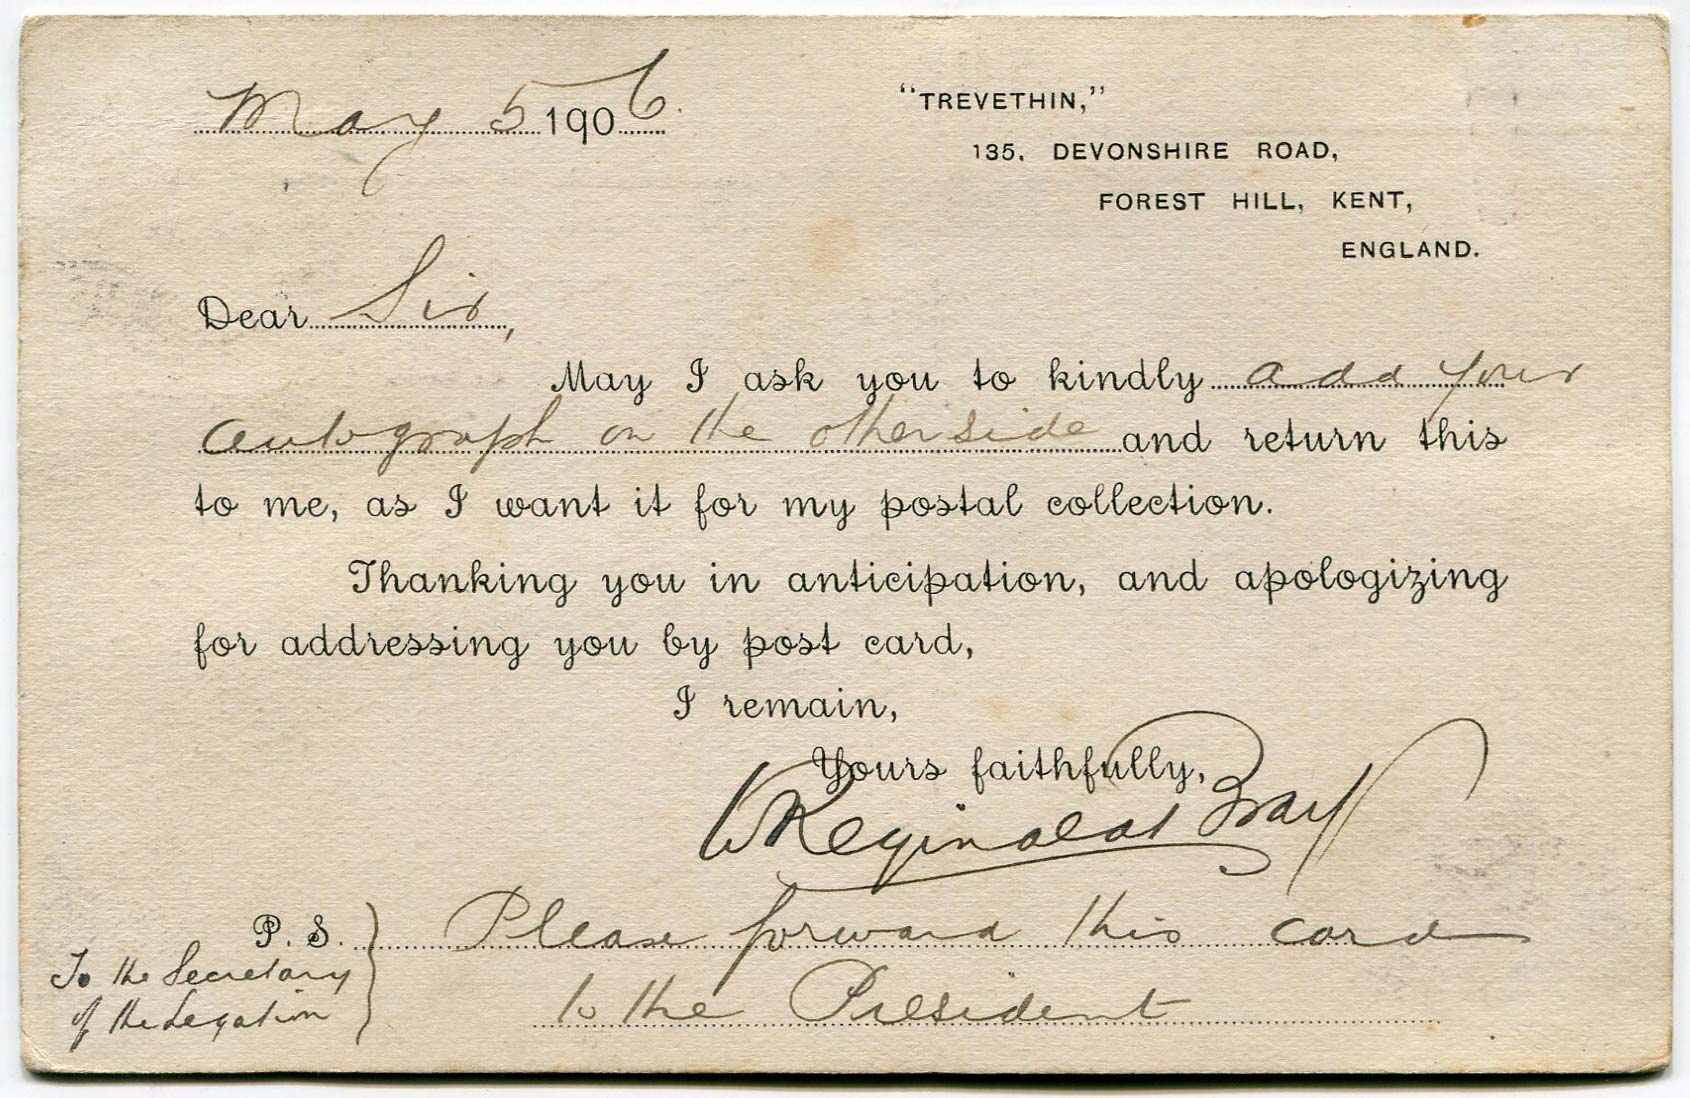 May 5 1906.
"TREVETHIN,"
135, DEVONSHIRE ROAD,
FOREST HILL, KENT,
ENGLAND.
Dear Sir,
May I ask you to kindly add your
autograph on the otherside and return this
to me, as I want it for my postal collection.
Thanking you in anticipation, and apologizing
for addressing you by post card,
I remain,
Yours faithfully,
W Reginald Bray
P. S. Please forward this card
To the Secretary
of the Legation
to the President